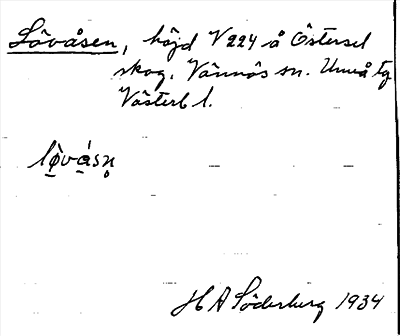 Lövåsen, höjd V 224 å Östersel
skog. Vännäs sn. Umeå tg
Västerb l.
lø̀vásn̥
H A Söderberg 1934